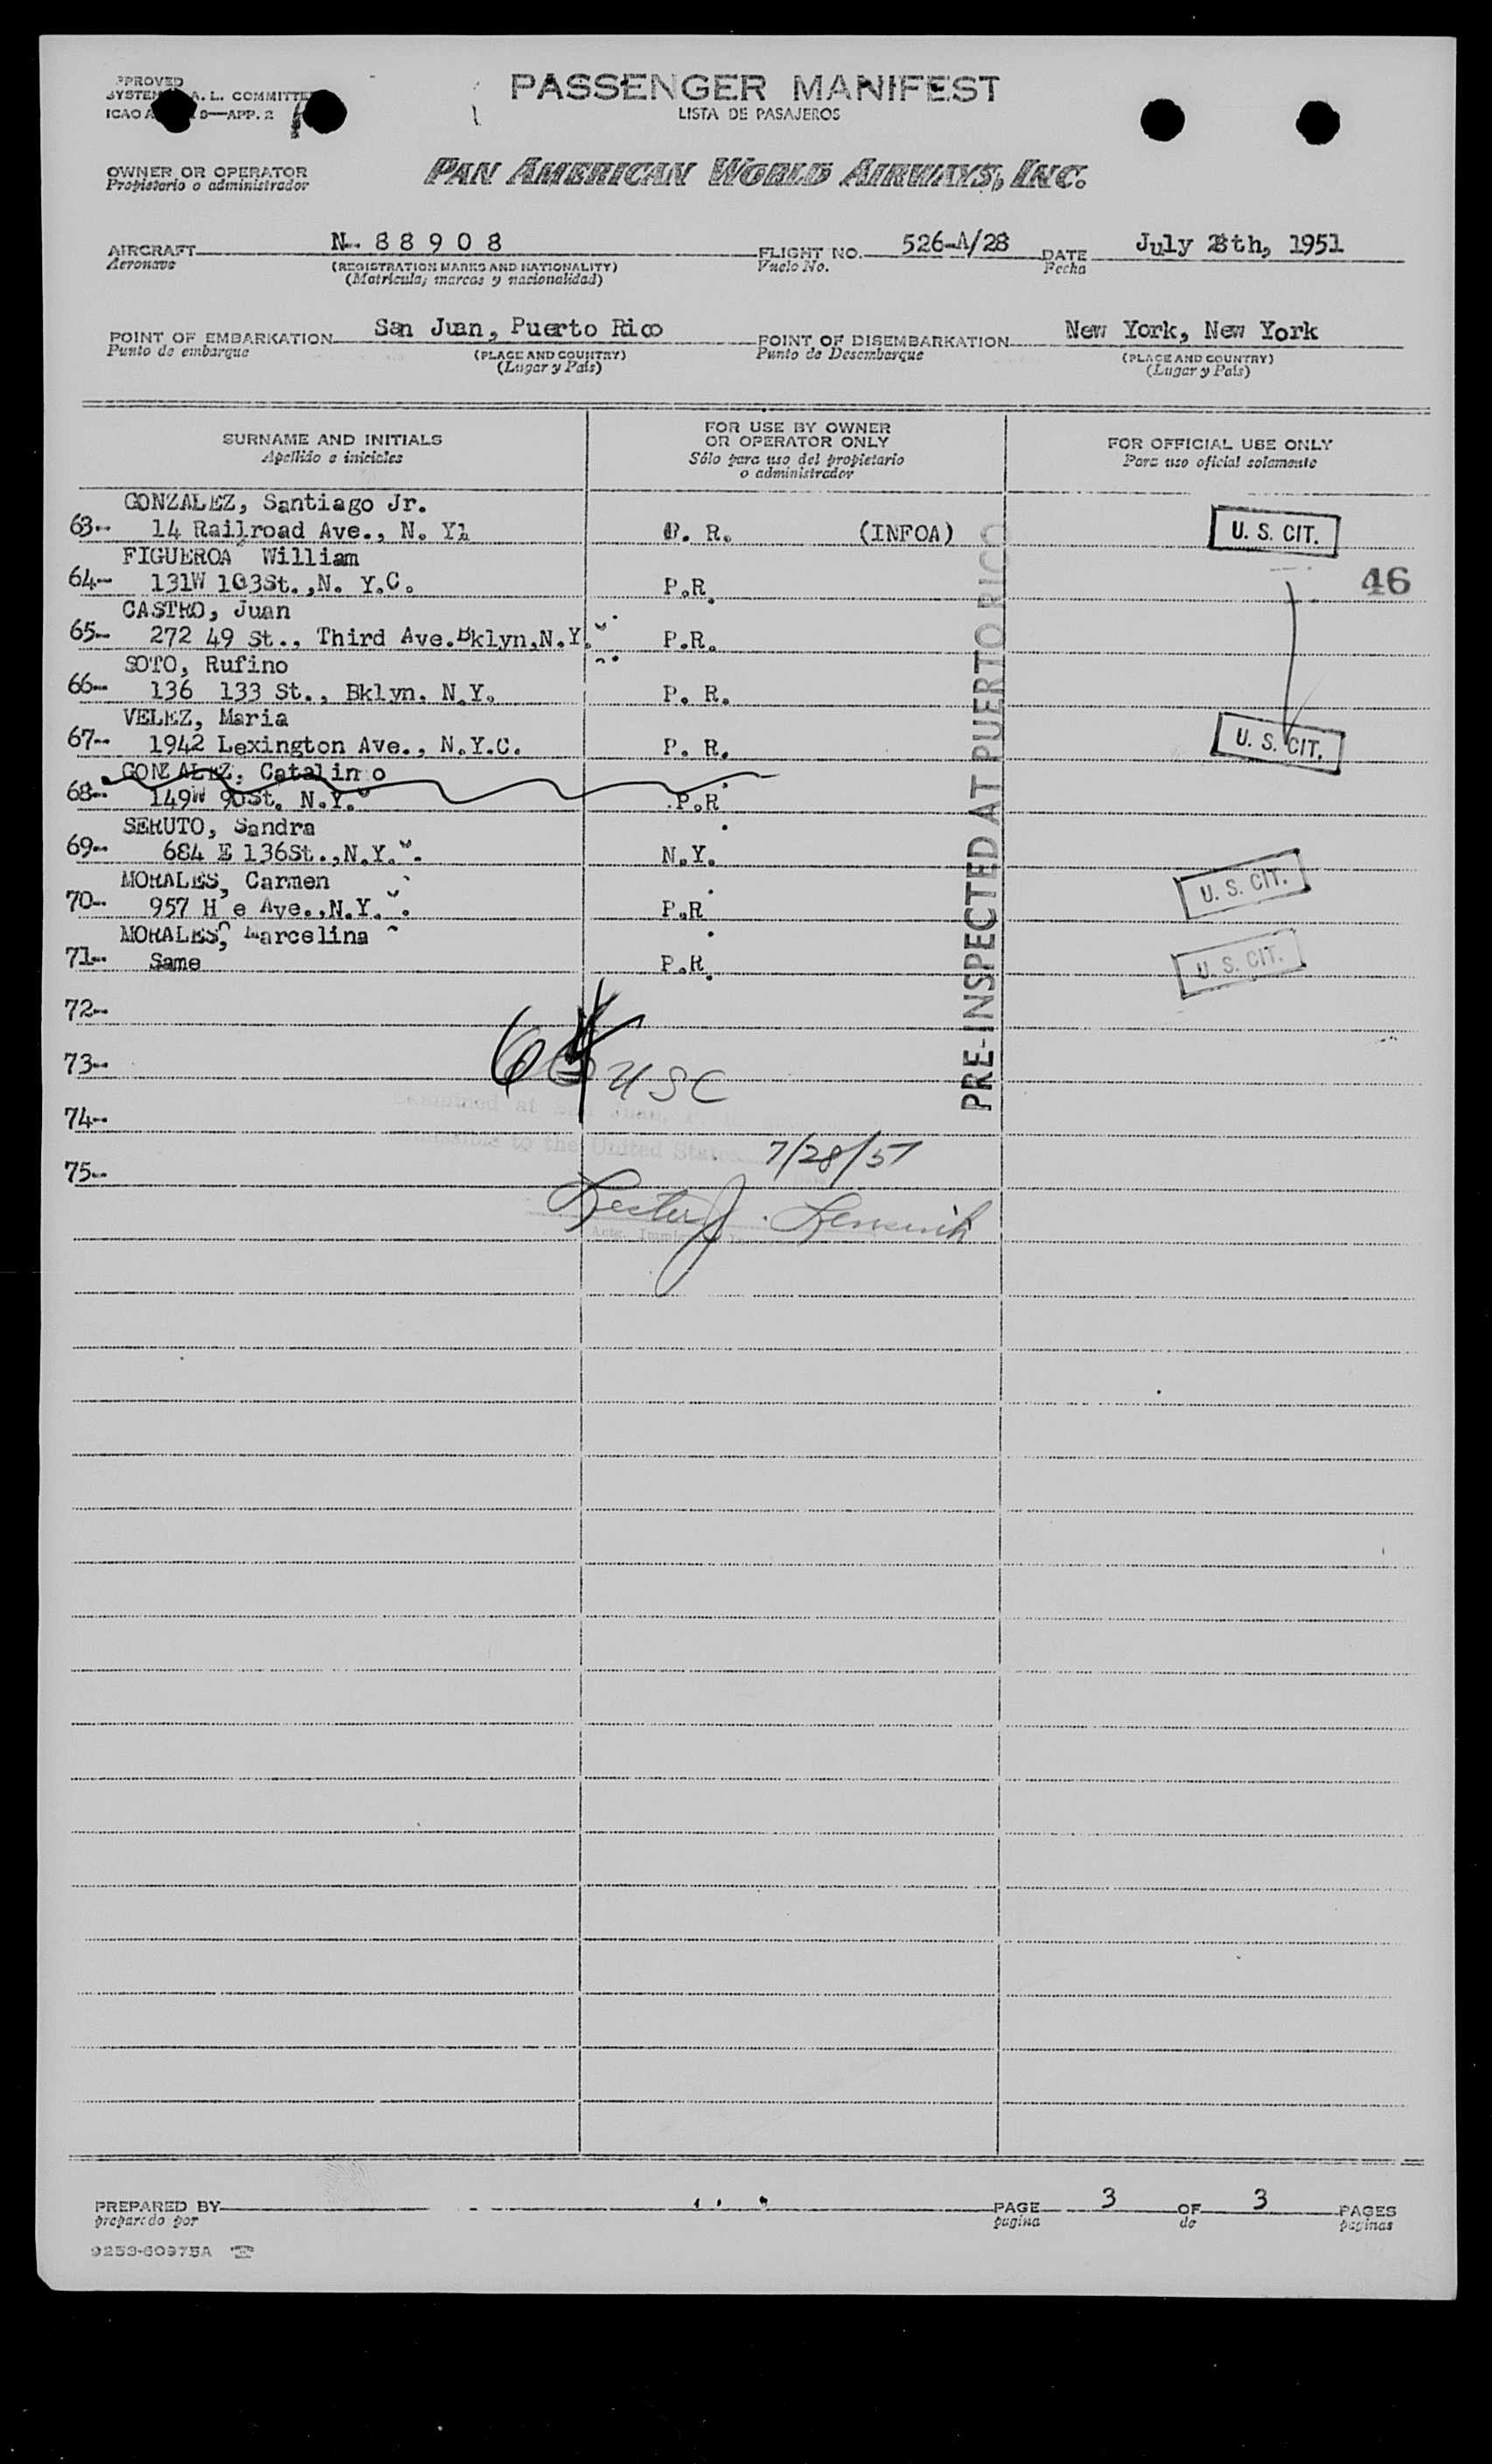 PPROVED
SYSTEM A. L. COMMITTE
ICAO A 9—APP. 2
PASSENGER MANIFEST
LISTA DE PASAJEROS
OWNER OR OPERATOR
Propietario o administrador
PAN AMERICAN WORLD AIRWAYS, INC.
AIRCRAFT N-. 8 8 9 0 8 FLIGHT NO. 526-A/28 DATE July 28th, 1951
Aeronave (REGISTRATION MARKS AND NATIONALITY) Vuelo No. Fecha
(Matrícula; marcas y nacionalidad)
POINT OF EMBARKATION San Juan, Puerto Rico POINT OF DISEMBARKATION New York, New York
Punto de embarque (PLACE AND COUNTRY) Punto de Desembarque (PLACE AND COUNTRY)
(Lugar y País) (Lugar y País)
SURNAME AND INITIALS
Apellido e iniciales
FOR USE BY OWNER
OR OPERATOR ONLY
Sólo para uso del propietario
o administrador
FOR OFFICIAL USE ONLY
Para uso oficial solamente
GONZALEZ, Santiago Jr.
63-- 14 Railroad Ave., N. Y1 P. R. (INFOA) U. S. CIT.
FIGUEROA William
64-- 131W 103St.,N. Y.C. P.R. 46
CASTRO, Juan
65-- 272 49 St., Third Ave.Bklyn,N.Y. P.R.
SOTO, Rufino
66-- 136 133 St., Bklyn. N.Y. P. R.
VELEZ, Maria
67-- 1942 Lexington Ave., N.Y.C. P. R. U. S. CIT.
GONZALEZ, Catalino
68-- 149W 90St. N.Y. P.R
SERUTO, Sandra
69-- 684 E 136St.,N.Y. N.Y.
MORALES, Carmen
70-- 957 H e Ave.,N.Y. P.R U. S. CIT.
MORALES, Marcelina
71-- Same P.R. U. S. CIT.
PRE-INSPECTED AT PUERTO RICO
72--
73-- USC
74--
Examined at San Juan,
to the United States
7/28/51
75--
Lester J.
PREPARED BY PAGE 3 OF 3 PAGES
preparado por pagina de paginas
9253-60975A